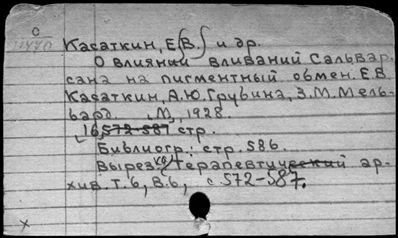 О
4440
Касаткин, Е.(В.) и др.
О влиянии вливаний Сальвар-
сана на пигментный обмен. Е.В.
Касаткин, А.Ю. Грубина, З.М. Мель-
вард. М., 1928.
16, 572-587 стр.
Библиогр.: стр. 586.
Вырез. из Терапевтический ар-
хив. Т. 6, В. 6, с. 572-587.
х